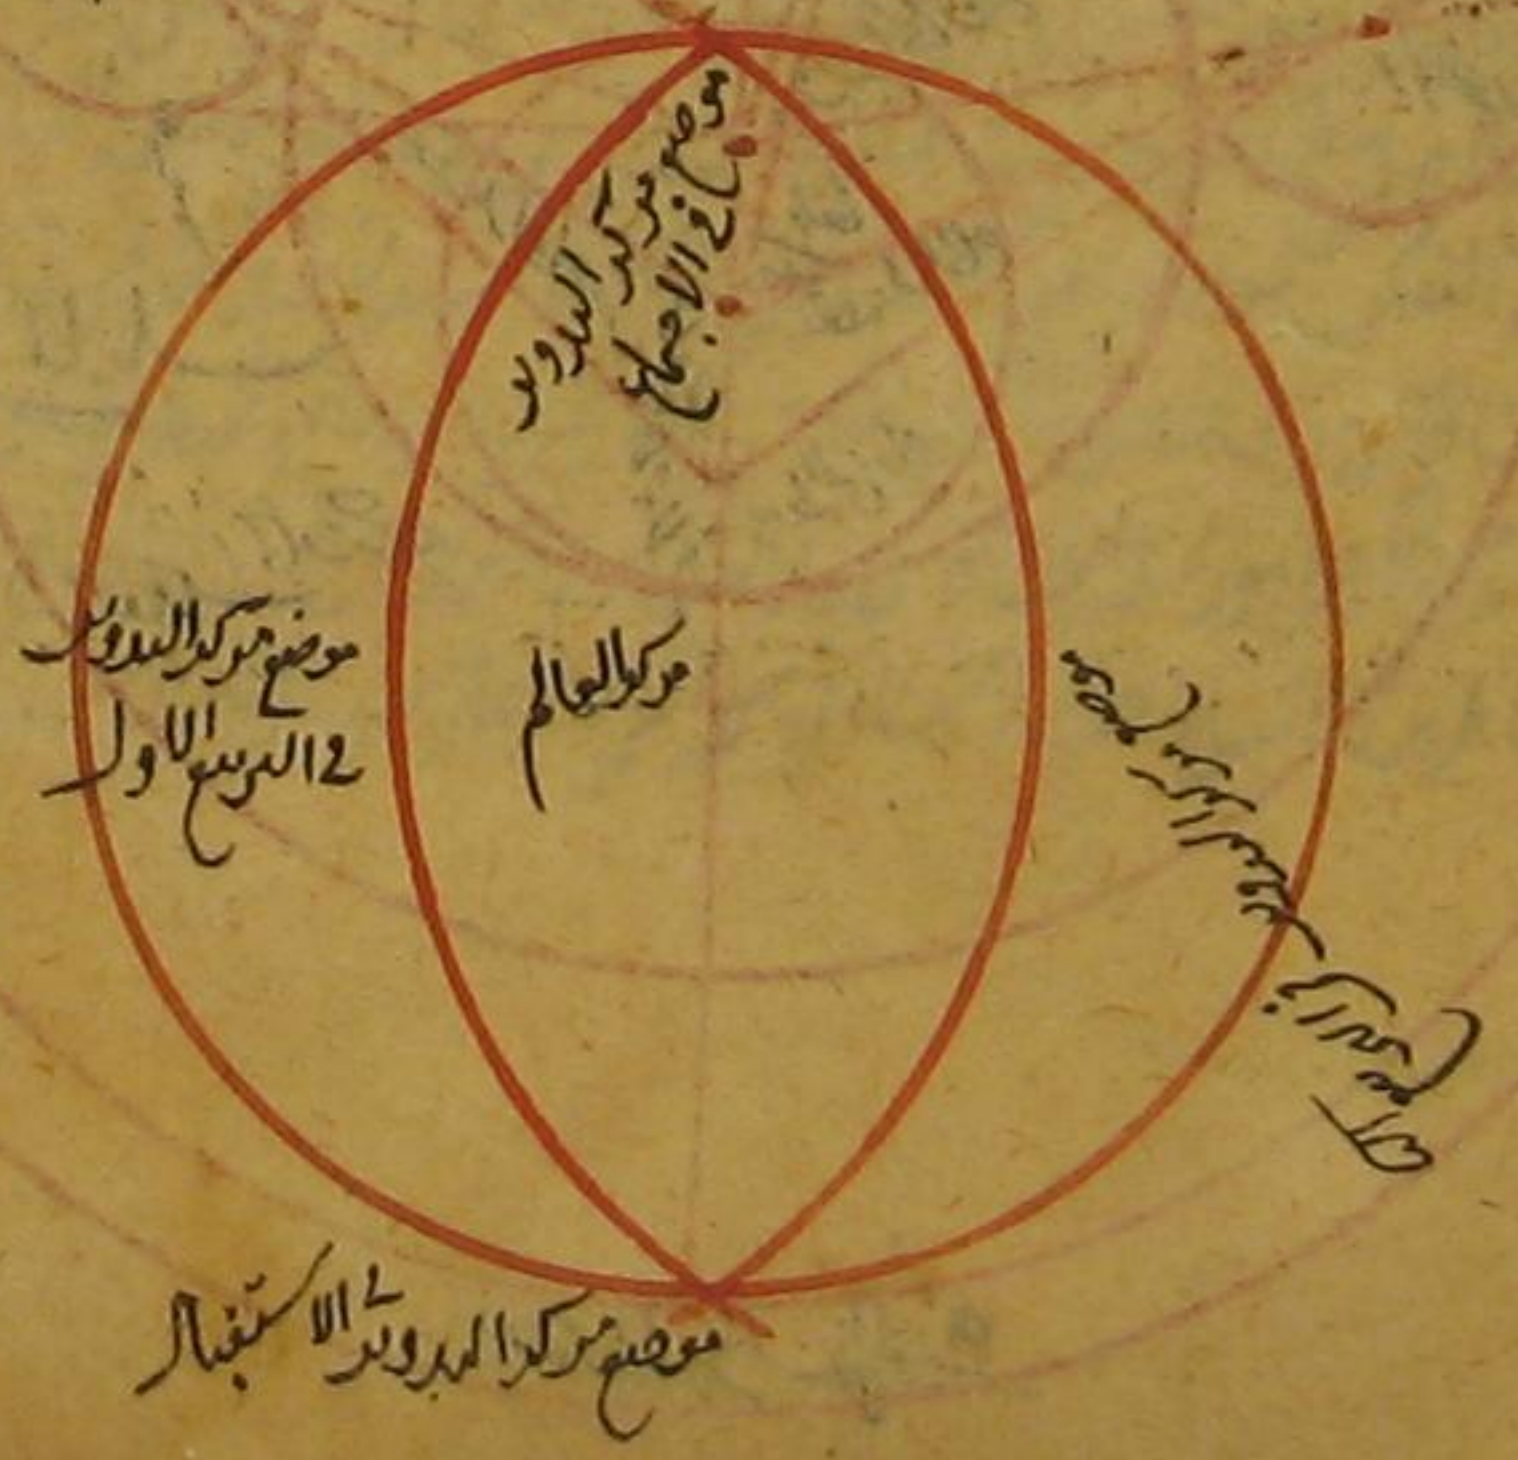 موضع مركز التدوير
في الاجتماع
موضع مركز التدوير
في التربيع الاول
مركز العالم
موضع مركز التدوير في التربيع الثاني
موضع مركز التدوير في الاستقبال